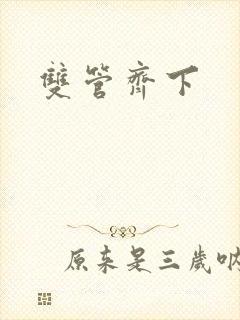 雙管齊下
原来是三歲吶